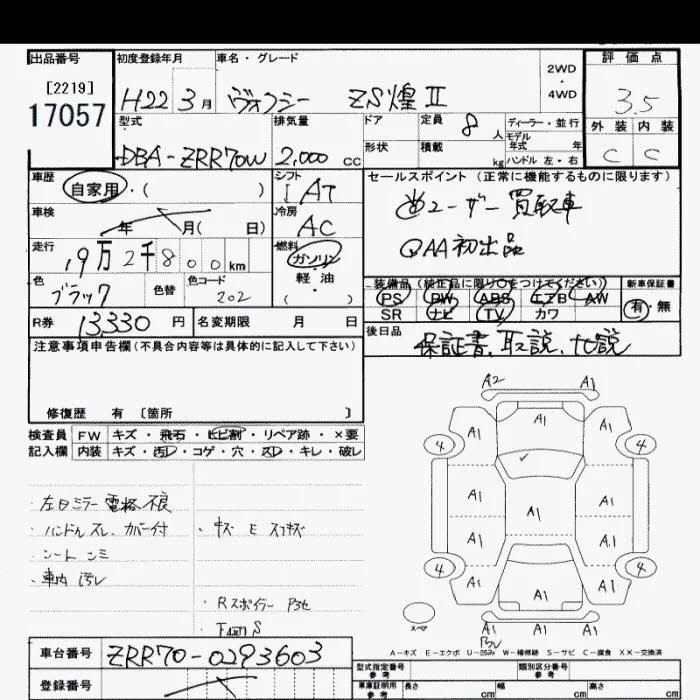 出品番号
[2219]
17057
初度登録年月
H22 3月
車名・グレード
ヴォクシー ZS煌Ⅱ
2WD
・
4WD
評価点
3.5
外装 内装
C C
型式
DBA-ZRR70W
排気量
2,000 cc
ドア
定員 8人
ディーラー・並行
モデル
年式 年
形状
積載 kg
ハンドル 左・右
車歴
自家用・( )
シフト
I AT
セールスポイント(正常に機能するものに限ります)
ユーザー買取車
QAA初出品
車検
年 月( 日)
冷房
AC
走行
19万2千800km
燃料
ガソリン
軽油
( )
色
ブラック
色替
色コード
202
装備品(純正品に限り○をつけてください)
PS PW ABS エアB AW
SR ナビ TV カワ
新車保証書
有・無
R券 13330円
名変期限 月 日
後日品
保証書、取説、ナビ説
注意事項申告欄(不具合内容等は具体的に記入して下さい)
修復歴 有 〔箇所 〕
検査員 FW キズ・飛石・ヒビ割・リペア跡・×要
記入欄 内装 キズ・汚レ・コゲ・穴・スレ・キレ・破レ
・左日ミラー電格不良
・ハンドルスレ、カバー付
・キズ E スリキズ
・シートシミ
・車内汚レ
・Rスポイラー
A2 A1
A1 A1 A1
4 4
A1 A1 A1
A1 A1
4 4
A1 A1 A1
スペア
A1 A1
A-キズ E-エクボ U-凹み W-補修跡 S-サビ C-腐食 XX-交換済
車台番号 ZRR70-0293603
登録番号
型式指定番号
参考
類別区分番号
参考
車庫証明用
参考
長さ cm 幅 cm 高さ cm